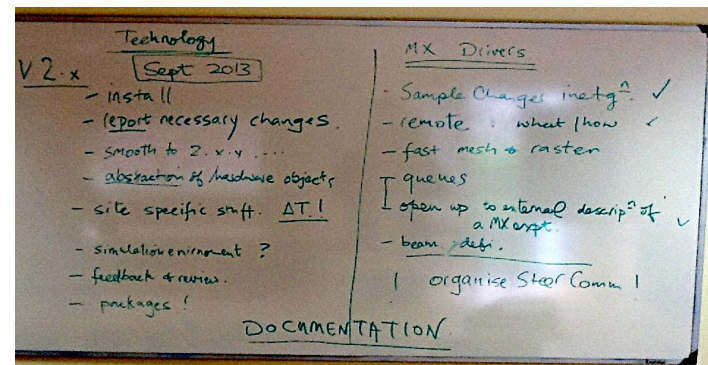 Technology
V 2.x
Sept 2013
- install
- report necessary changes.
- smooth to 2.x.y ....
- abstraction of hardware objects
- site specific stuff. ΔT!
- simulation enirnoment ?
- feedback & review.
- packages!
MX Drivers
- Sample Changer inetgⁿ. ✓
- remote : what / how ✓
- fast mesh & raster
queues
open up to external descripⁿ of
a MX expt. ✓
- beam defi.
! organise Steer Comm !
DOCUMENTATION